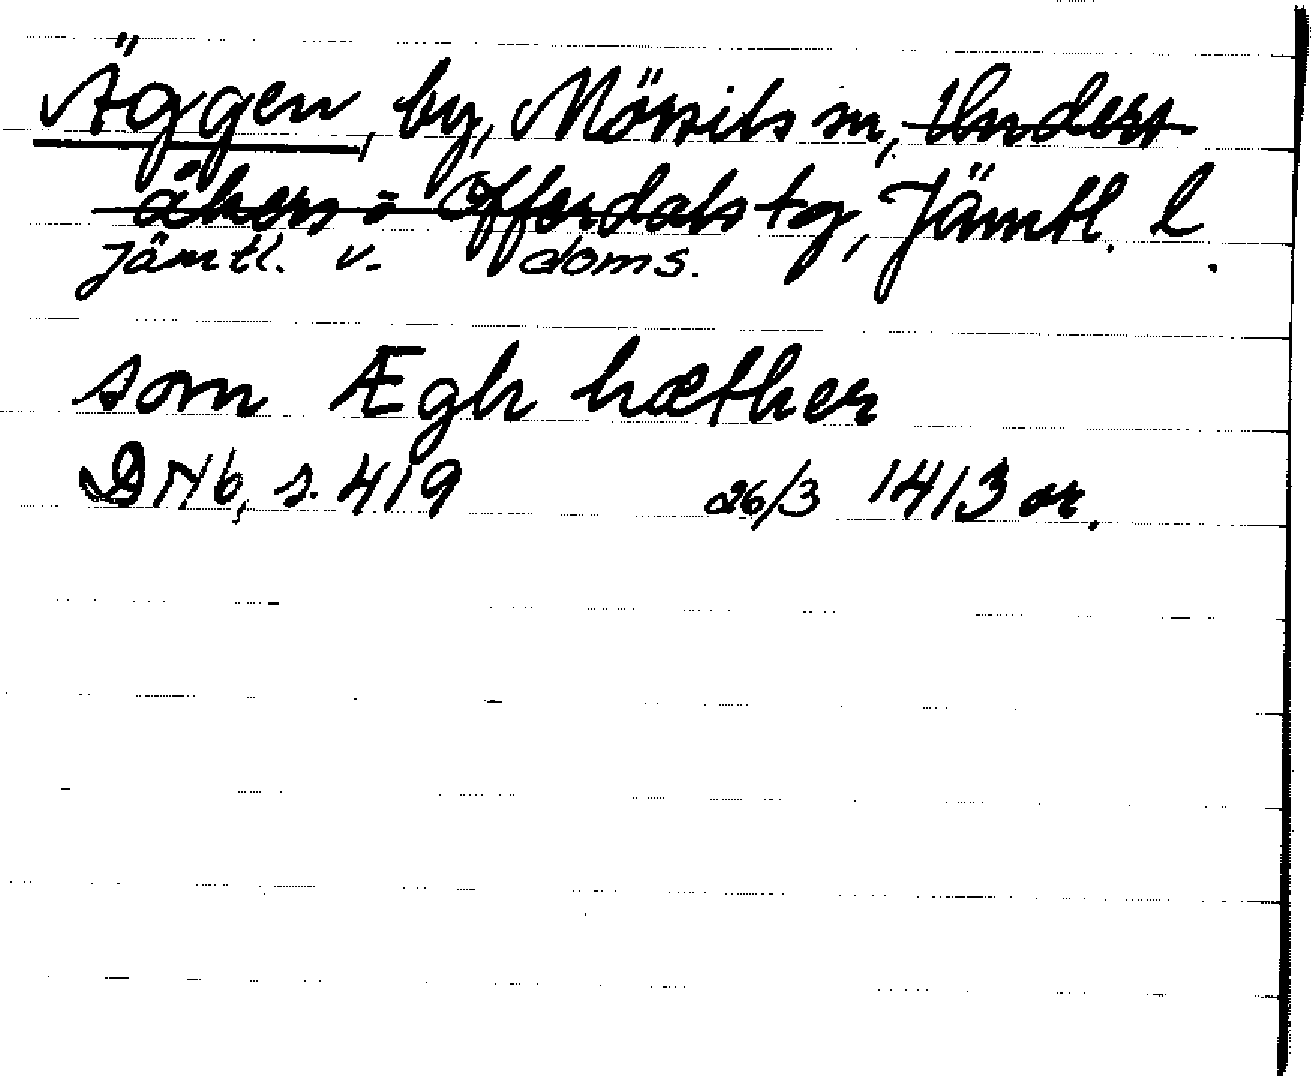 Äggen, by, Mörsils sn, Unders-
åkers o Offerdals tg, Jämtl. l.
Jämtl. v. doms.
som Ægh hæther
DN 16, s. 419 26/3 1413 or.